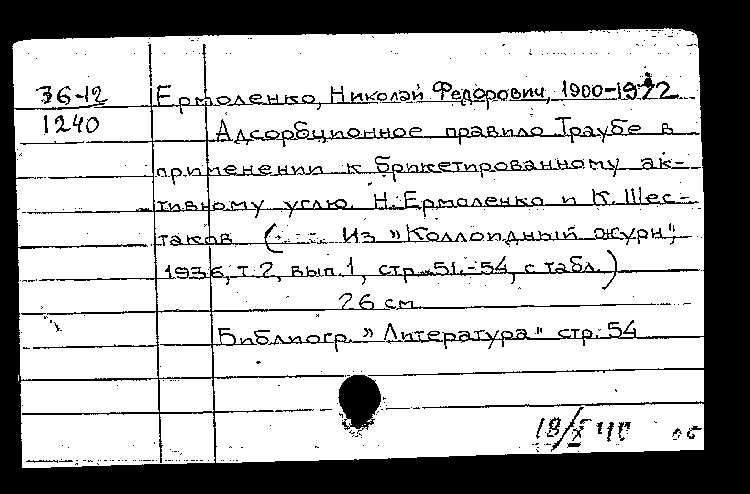 36-12 Ермоленко, Николай Федорович, 1900-1972
1240 Адсорбционное правило Траубе в
применении к брикетированному ак-
тивному углю. Н. Ермоленко и К. Шес-
таков. ( Из "Коллоидный журн",
1936, т. 2, вып. 1, стр. 51.-54, с табл.)
26 см
Библиогр. "Литература" стр. 54
18/X 40